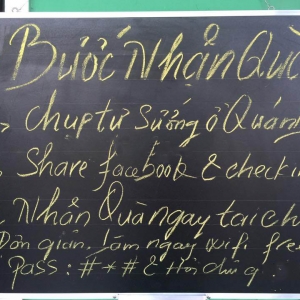 Bước Nhận Quà
Chụp tự sướng ở Quán
Share facebook & check in
Nhận Quà ngay tại ch
Đơn giản. Làm ngay wifi free
Pass: #*# &